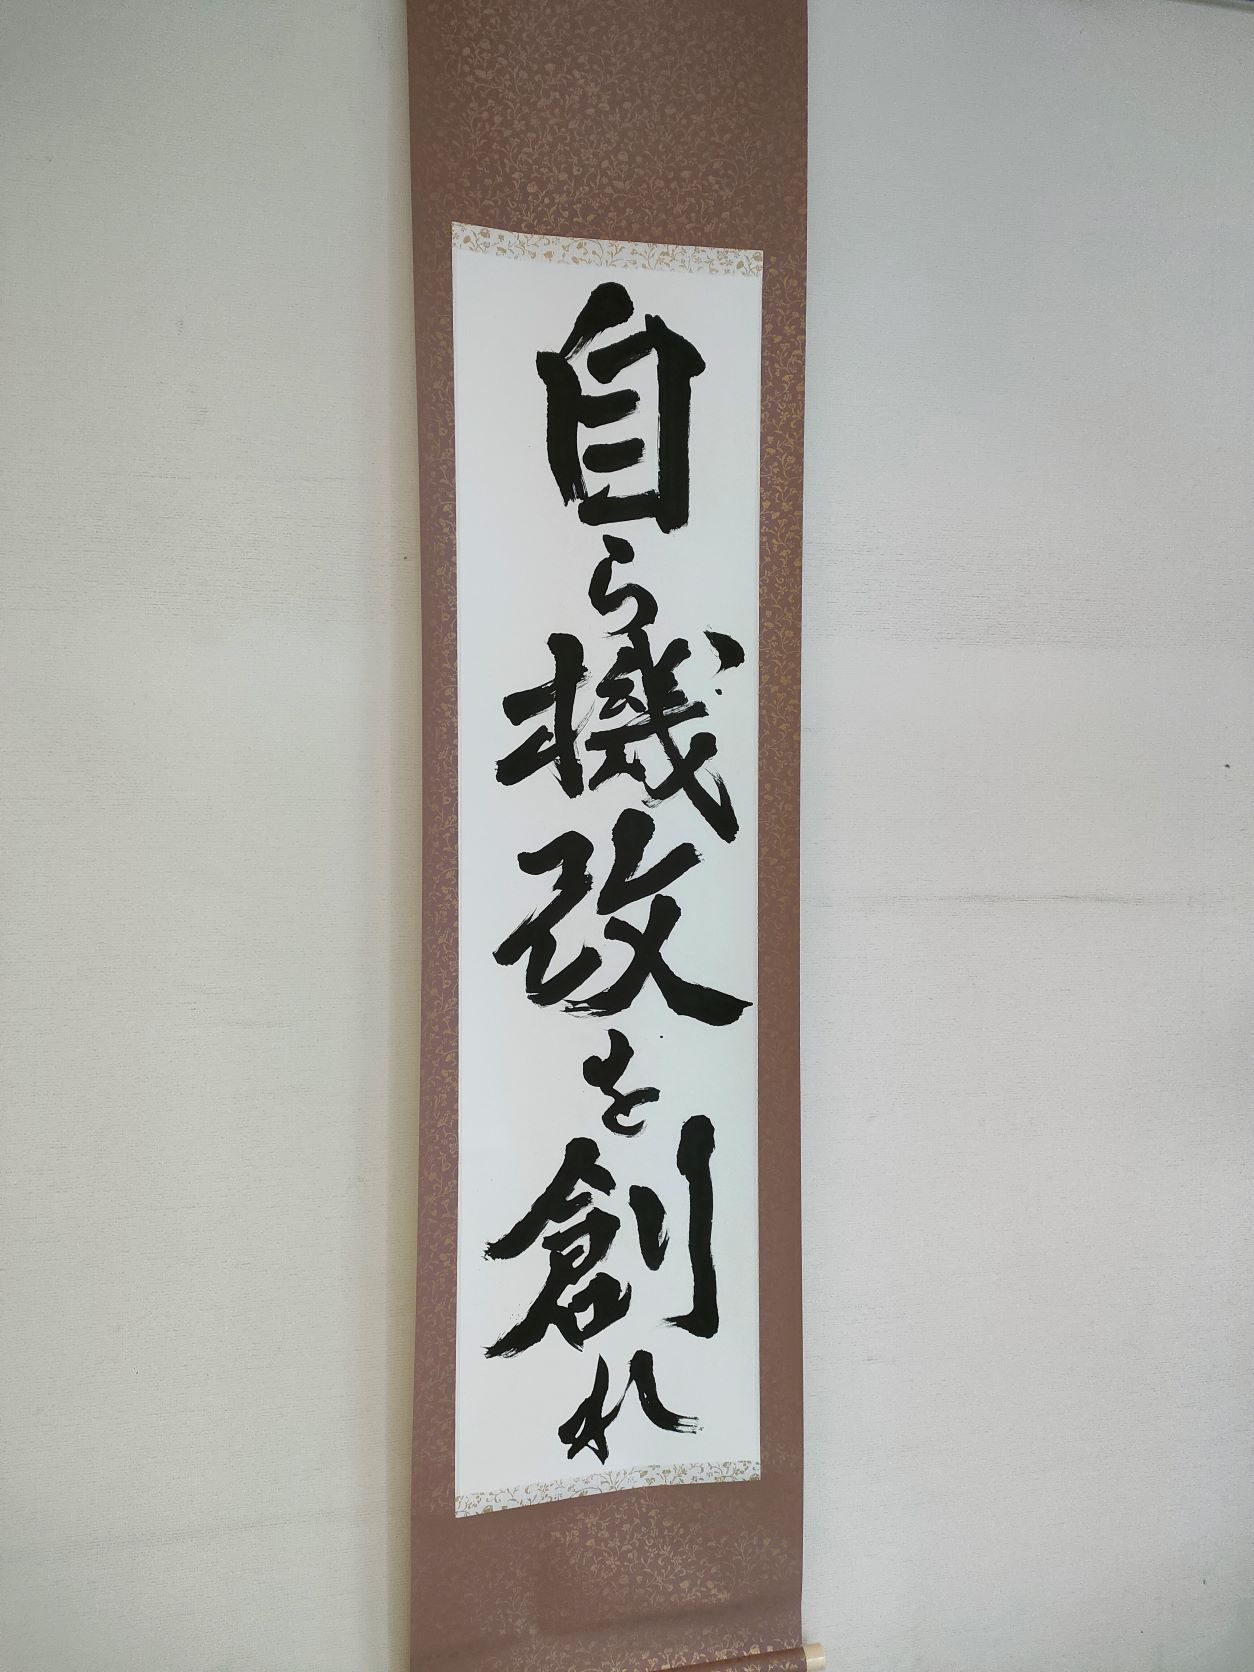 自ら機改を創れ